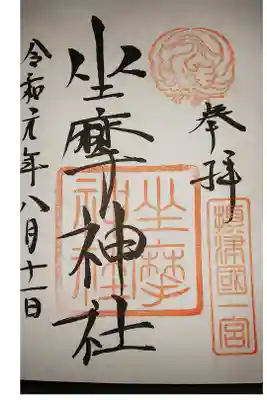 奉拝
摂津國一宮
坐摩神社
坐摩
神社
令和元年八月十一日